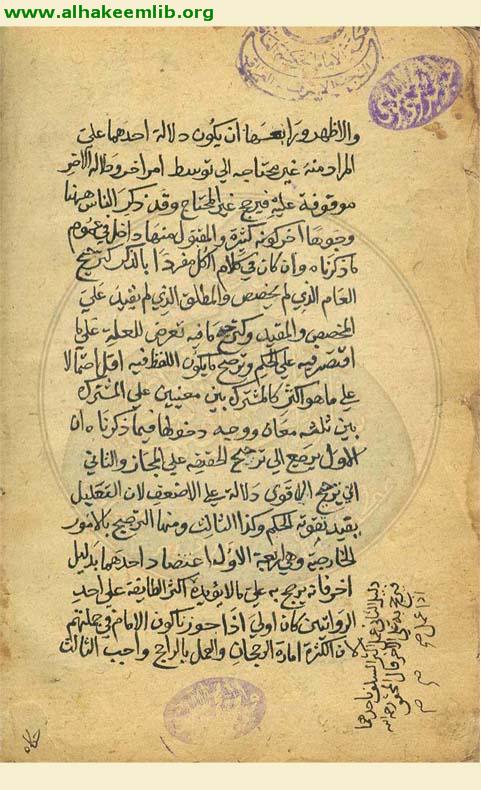 www.alhakeemlib.org
والاظهر ورابعها ان يكون دلالة احدهما على
المراد منه غير محتاجه الى توسط امر اخر ودلالة الاخر
موقوفة عليه فيرجح غير المحتاج وقد ذكر الناس ههنا
وجوها اخر كونه كثيرة والمقبول منها داخل في عموم
ما ذكرناه وان كان في كلام الكل مفردا بالذكر كترجيح
العام الذي لم يخصص والمطلق الذي لم تقيد على
المخصص والمقيد وكترجيح ما فيه تعرض للعلة على ما
اقتصر فيه على الحكم وترجيح ما يكون اللفظ فيه اقل احتمالا
على ما هو اكثر كالمشترك بين معنيين على المشترك
بين ثلثه معان ووجه دخولها فيما ذكرناه ان
الاول يرجع الى ترجيح الحقيقه على المجاز والثاني
الى ترجيح الاقوى دلالة على الاضعف لان التعليل
يفيد تقوية الحكم وكذا الثالث ومنها الترجيح بالامور
الخارجية وهي اربعة الاول اعتضاد احدهما بدليل
اخر فانه يرجح به على ما لا يؤيده اكثر الطايفة على احد
الروايتين كان اولى اذا جوزنا كون الامام في جملتهم
لان الكثرة امارة الرجحان والعمل بالراجح واجب الثالث